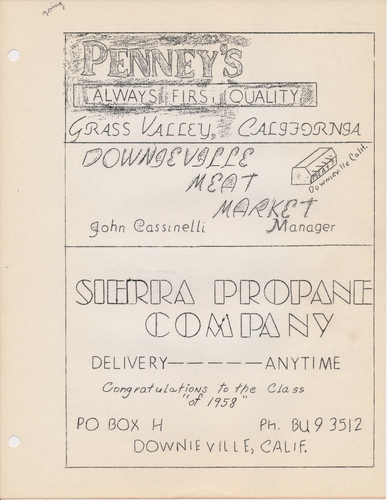 going
PENNEY'S
ALWAYS FIRST QUALITY
GRASS VALLEY, CALIFORNIA
DOWNIEVILLE
MEAT
MARKET
Downieville Calif.
John Cassinelli Manager
SIERRA PROPANE
COMPANY
DELIVERY-----ANYTIME
Congratulations to the Class
"of 1958"
PO BOX H Ph. BU 9 3512
DOWNIEVILLE, CALIF.